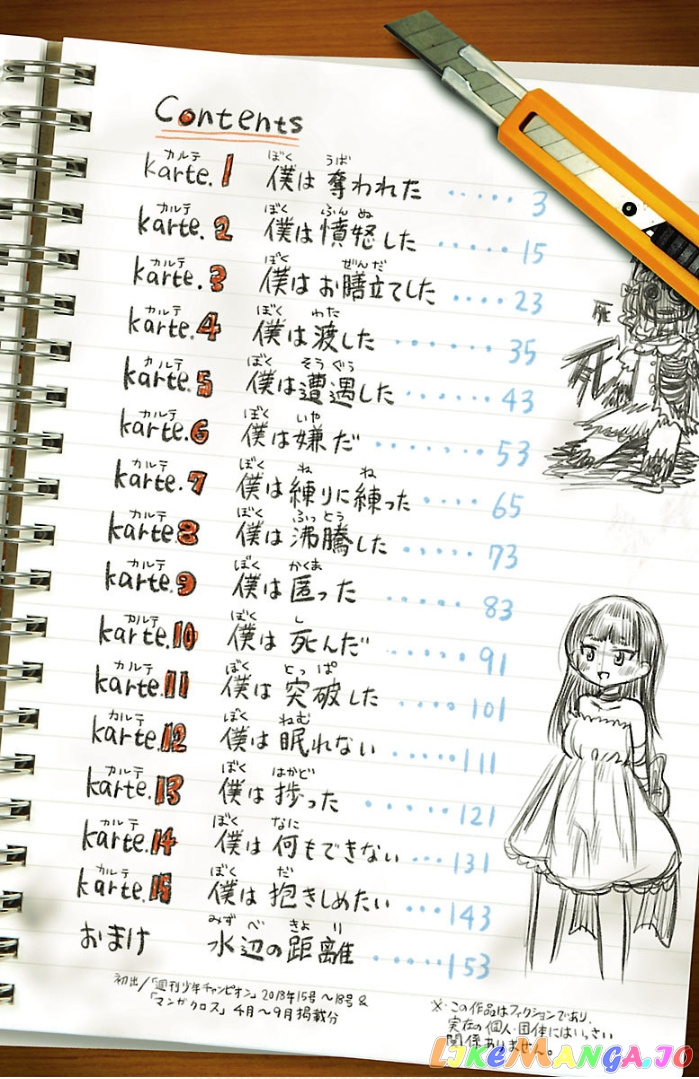 Contents
karte.1 僕は奪われた ..... 3
karte.2 僕は憤怒した ..... 15
karte.3 僕はお膳立てした .... 23
karte.4 僕は渡した ....... 35
karte.5 僕は遭遇した ..... 43
karte.6 僕は嫌だ ....... 53
karte.7 僕は練りに練った .... 65
karte.8 僕は沸騰した ..... 73
karte.9 僕は匿った ..... 83
karte.10 僕は死んだ ..... 91
karte.11 僕は突破した .... 101
karte.12 僕は眠れない ..... 111
karte.13 僕は捗った ..... 121
karte.14 僕は何もできない ... 131
karte.15 僕は抱きしめたい ... 143
おまけ 水辺の距離 ..... 153
初出/「週刊少年チャンピオン」2018年15号〜18号&
「マンガクロス」4月〜9月掲載分
※この作品はフィクションであり、
実在の個人・団体にはいっさい
関係ありません。
死
LIKEMANGA.IO